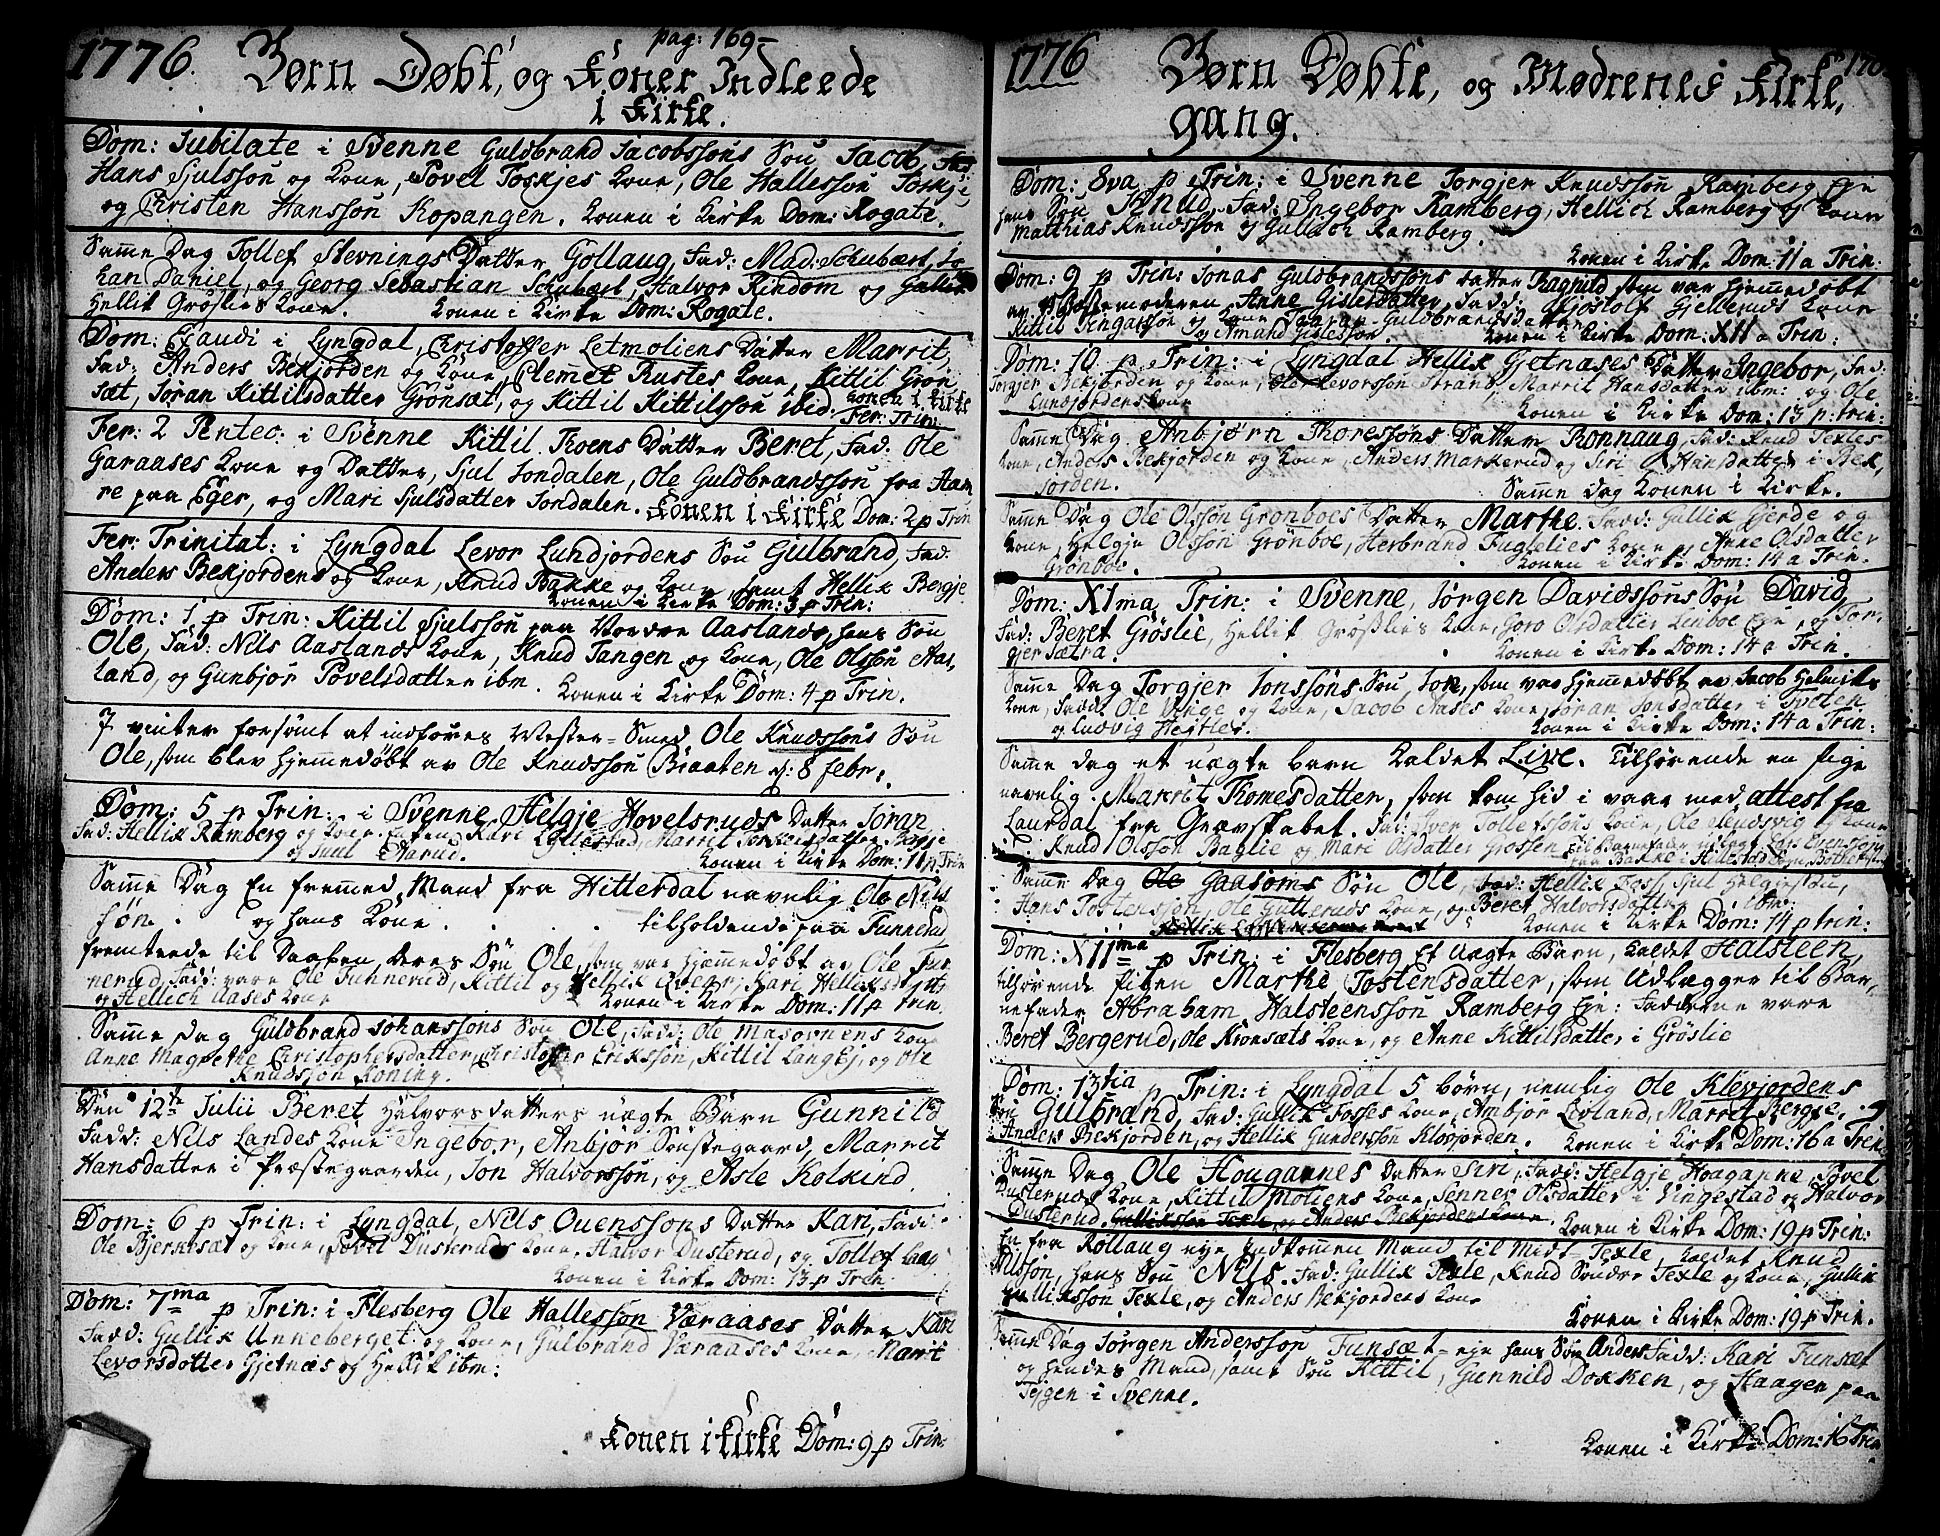 1776. pag: 169
Børn Døbt, og Koner Indleede
i Kirke.
Dom: Jubilate i Svenne Guldbrand Jacobssøns Søn Jacob, Fad:
Hans Sjulssøn og Kone, Povel Foskjes Kone, Ole Hallessøn Foskje
og Christen Hanssøn Kopangen. Konen i Kirke Dom: Rogate.
Samme Dag Tollef Stevnings Datter Gollaug, Fad: Mad: Schubært, Jo-
han Daniel, og Georg Sebastian Schubært, Halvor Rindom og
Hellik Grøslies Kone. Konen i Kirke Dom: Rogate.
Dom: Exaudi i Lyngdal, Christoffer Letmoliens Datter Marrit,
Fad: Anders Bekjorden og Kone, Clemet Rustes Kone, Kittil Grøn
sæt, Jøran Kittilsdatter Grønsæt, og Kittil Kittilssøn ibid: Konen i Kirke
Fer: Trin:
Fer: 2 Pentec: i Svenne Kittil Moens Datter Beret, Fad: Ole
Garaases Kone og Datter, Sjul Jondalen, Ole Guldbrandssøn fra Ham
re paa Eger, og Mari Sjulsdatter Jondalen. Konen i Kirke Dom: 2 p Trin
Fer: Trinitat: i Lyngdal Levor Lundjordens Søn Gulbrand, Fad:
Anders Bekjorden og Kone, Knud Bakke og Kone, samt Hellik Bergje
Konen i Kirke Dom: 3 p Trin:
Dom: 1 p Trin: Kittil Sjulssøn paa Nordre Aasland, hans Søn
Ole, Fad: Nils Aaslands Kone, Knud Tangen og Kone, Ole Olssøn Aas,
land, og Gunbjør Povelsdatter ibm. Konen i Kirke Dom: 4 p Trin.
7 vinter forsømt at indføres Mester-Smed Ole Knudssøns Søn
Ole, som blev hjemmedøbt av Ole Knudssøn Braaten d: 8 febr:
Dom: 5 p Trin: i Svenne Helgje Hovelsruds Datter Jøran
Fad: Hellik Ramberg og Kone, Kari Lyllestad, Marrit
og Juul. Konen i Kirke Dom: 11 p Trin
Samme Dag En fremmed Mand fra Hitterdal navnlig Ole Nils
søn og hans Kone tilholdende paa Funnerud
fremteede til Daaben deres Søn Ole, som var hjemmedøbt av Ole Fun
nerud, Fad: vare Ole Funnerud, Kittil og Hellik, Kari Helliksdatter
og Hellich Aases Kone Konen i Kirke Dom: 11 p Trin.
Samme Dag Guldbrand Johanssøns Søn Ole, Fad: Ole Masovnens Kone
Anne Magrethe Christophersdatter, Christopher Erikssøn, Kittil Langej, og Ole
Knudssøn Koning.
Den 12te Julii Beret Halvorsdatters uægte Barn Gunnild
Fadd: Nils Landes Kone Ingebor, Anbjør Prøstegaard, Marrit
Hansdatter i Præstegaarden, Jon Halvorssøn, og Asle Kolkind.
Dom: 6 p Trin: i Lyngdal, Nils Ouenssøns Datter Kari, Fad:
Ole Bjerknsæt og Kone, Povel Dusteruds Kone, Halvor Dusterud, og Tollef
Konen i Kirke Dom: 13 p Trin:
Dom: 7ma p Trin: i Flesberg Ole Hallessøn Væraases Datter Kari
Fadd: Gullik Unneberget og Kone, Gulbrand Væraases Kone, Marri
Levorsdatter Gjetnæs og Hellik ibm:
Konen i Kirke Dom: 9 p Trin:
1776 Børn Døbte, og Mødrenes Kirke, 170
gang.
Dom: 8va p Trin: i Svenne Torgjer Knudssøn Ramberg eje
hans Søn Knud. Fad: Ingebor Ramberg, Hellich Ramberg og Kone
Matthias Knudssøn og Gullich Ramberg.
Konen i Kirke Dom: 11 a Trin:
Dom: 9 p Trin: Jonas Guldbrandssøns Datter Ragnild som var hjemmedøbt
av Mostemoderen Anne Gislesdatter, Fad: Kjøstolf Gjellerunds Kone
Kittil Ingarssøn og Kone Jøran Guldbrandsdatter
og Amund Gislessøn. Konen i Kirke Dom: XII a Trin:
Dom: 10 p Trin: i Lyngdal Hellik Gjetnases Datter Ingebor, Fad:
Torgjer Bekjorden og Kone, Ole Levorssøn Strand, Marrit Hansdatter ibm: og Ole
Lundjordens Kone Konen i Kirke Dom: 13 p: trin:
Samme Dag Anbjørn Thoressøns Datter Ronnaug, Fad: Knud Texles
Kone, Anders Bekjorden og Kone, Anders Markerud og Siri Hansdatter i Bek,
jorden. Samme Dag Konen i Kirke.
Samme Dag Ole Olssøn Grønboes Datter Marthe. Fad: Gullik Gjerde og
Kone, Helgje Olssøn Grønboe, Herbrand Fuglelies Kone, Anne Olsdatter
Grønboe. Konen i Kirke Dom: 14 a Trin.
Dom: XIma Trin: i Svenne, Jørgen Davidssøns Søn David,
Fad: Beret Grøslie, Hellik Grøslies Kone, Goro Olsdatter Lenboe Eje, og Tor,
gjer Sætra. Konen i Kirke Dom: 14 a Trin.
Samme Dag Torgjer Jonssøns Søn Jon, som var hjemmedøbt av Jacob Helmiks
Kone, Fadd: Ole og Kone, Jacob Aases Kone, Jøran Jonsdatter i Tveten
og Ludvig Hejtler. Konen i Kirke Dom: 14 a Trin:
Samme Dag et uægte barn kaldet Live. Tilhørende en pige
navnlig Marrit Thomesdatter, som kom hid i vaar med attest fra
Laurdal fra Grævskabet. Fad: Iver Tollefssøns Kone, Ole og Kone
Knud Olssøn Baglie og Mari Olsdatter Grossen
Samme Dag Ole Gaasoms Søn Ole, Fad: Hellik Foss, Sjul Helgjesdu,
Hans Tostenssøn, Ole Gutteruds Kone, og Beret Halvorsdatter ibm.
Konen i Kirke Dom: 14 p trin:
Dom: XIIma p Trin: i Flesberg Et Uægte Barn, kaldet Halsteen,
tilhørende Pigen Marthe Tostensdatter, som Udlægger til Bar,
nefader Abraham Halsteenssøn Ramberg Eje: Fadderne vare
Beret Bergerud, Ole Kronsæts Kone, og Anne Kittilsdatter i Grøslie
Dom: 13tia p Trin: i Lyngdal 5 børn, nemlig Ole Klevjordens
Søn Gulbrand, Fad: Gullik Fosses Kone, Ambjør Levland, Marrit Bergje,
Anders Bekjorden, og Hellik Gunderssøn Kløvjorden. Konen i Kirke Dom: 16 a Trin
Samme Dag Ole Hougannes Datter Siri, Fad: Helgje Hoaganne, Povel
Dusteruds Kone, Kittil Moliens Kone, Sennev Olsdatter i Vingestad og Halvor
Dusterud, Gullikssøn Texle, og Anders Bekjordens Kone. Konen i Kirke Dom: 19 p Trin:
En fra Rollaug nye indkommen Mand til Midt-Texle, kaldet Knud
Nilssøn, hans Søn Nils. Fad: Gullik Texle, Knud Søndre Texle og Kone, Gullik
Gullikssøn Texle, og Anders Bekjordens Kone
Konen i Kirke Dom: 19 p Trin.
Samme Dag Jørgen Anderssøn Funsæt-eje hans Søn Anders Fadd: Kari Funsæt
og hendes Mand, samt Søn Kittil, Gunnild Dokken, og Haagen paa
Tejgen i Svenne.
Konen i Kirke Dom: 16 Trin